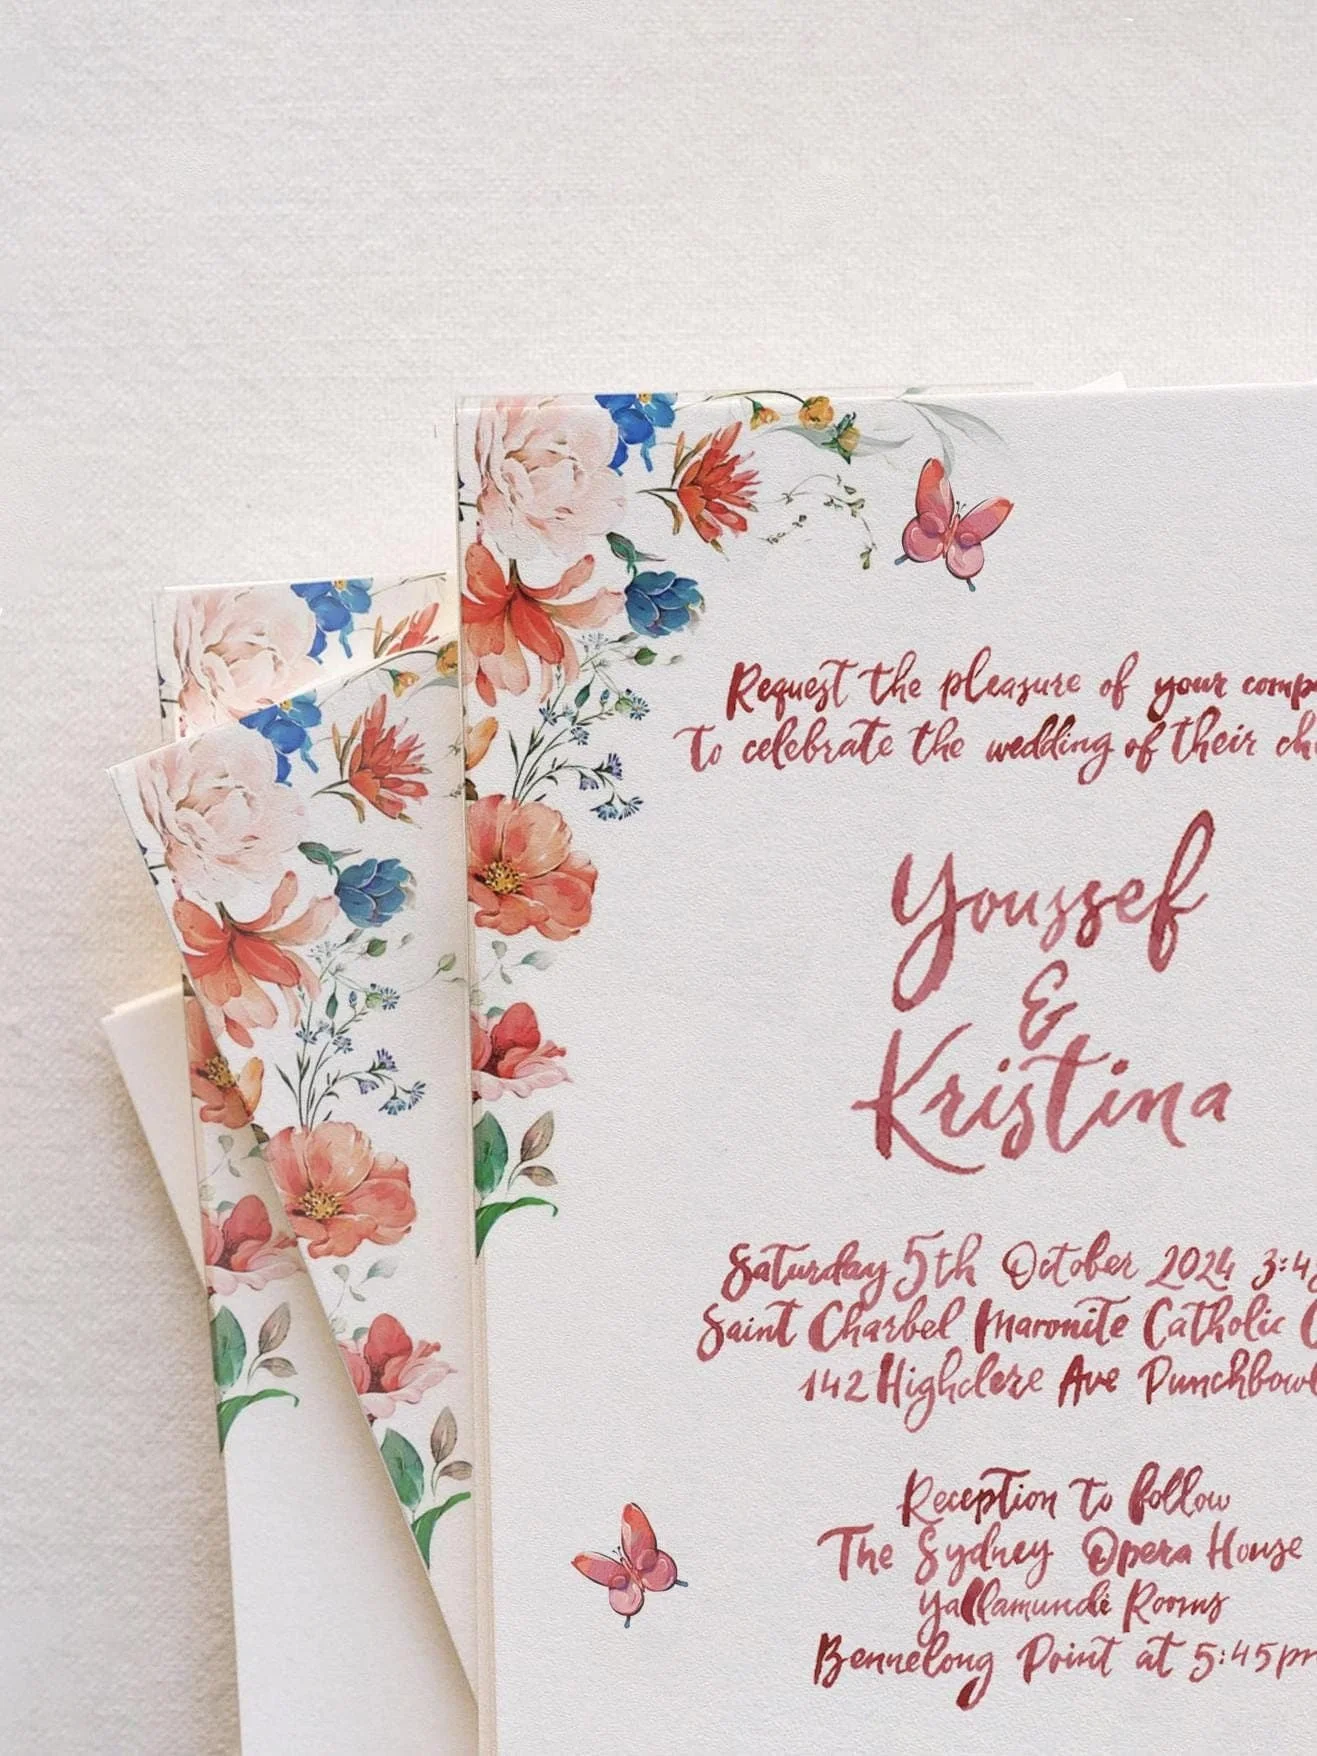 Request the pleasure of your comp
to celebrate the wedding of their ch
Youssef
&
Kristina
Saturday 5th October 2024 3:45
Saint Charbel Maronite Catholic C
142 Highclere Ave Punchbowl
Reception to follow
The Sydney Opera House
Yallamundi Rooms
Bennelong Point at 5:45pm